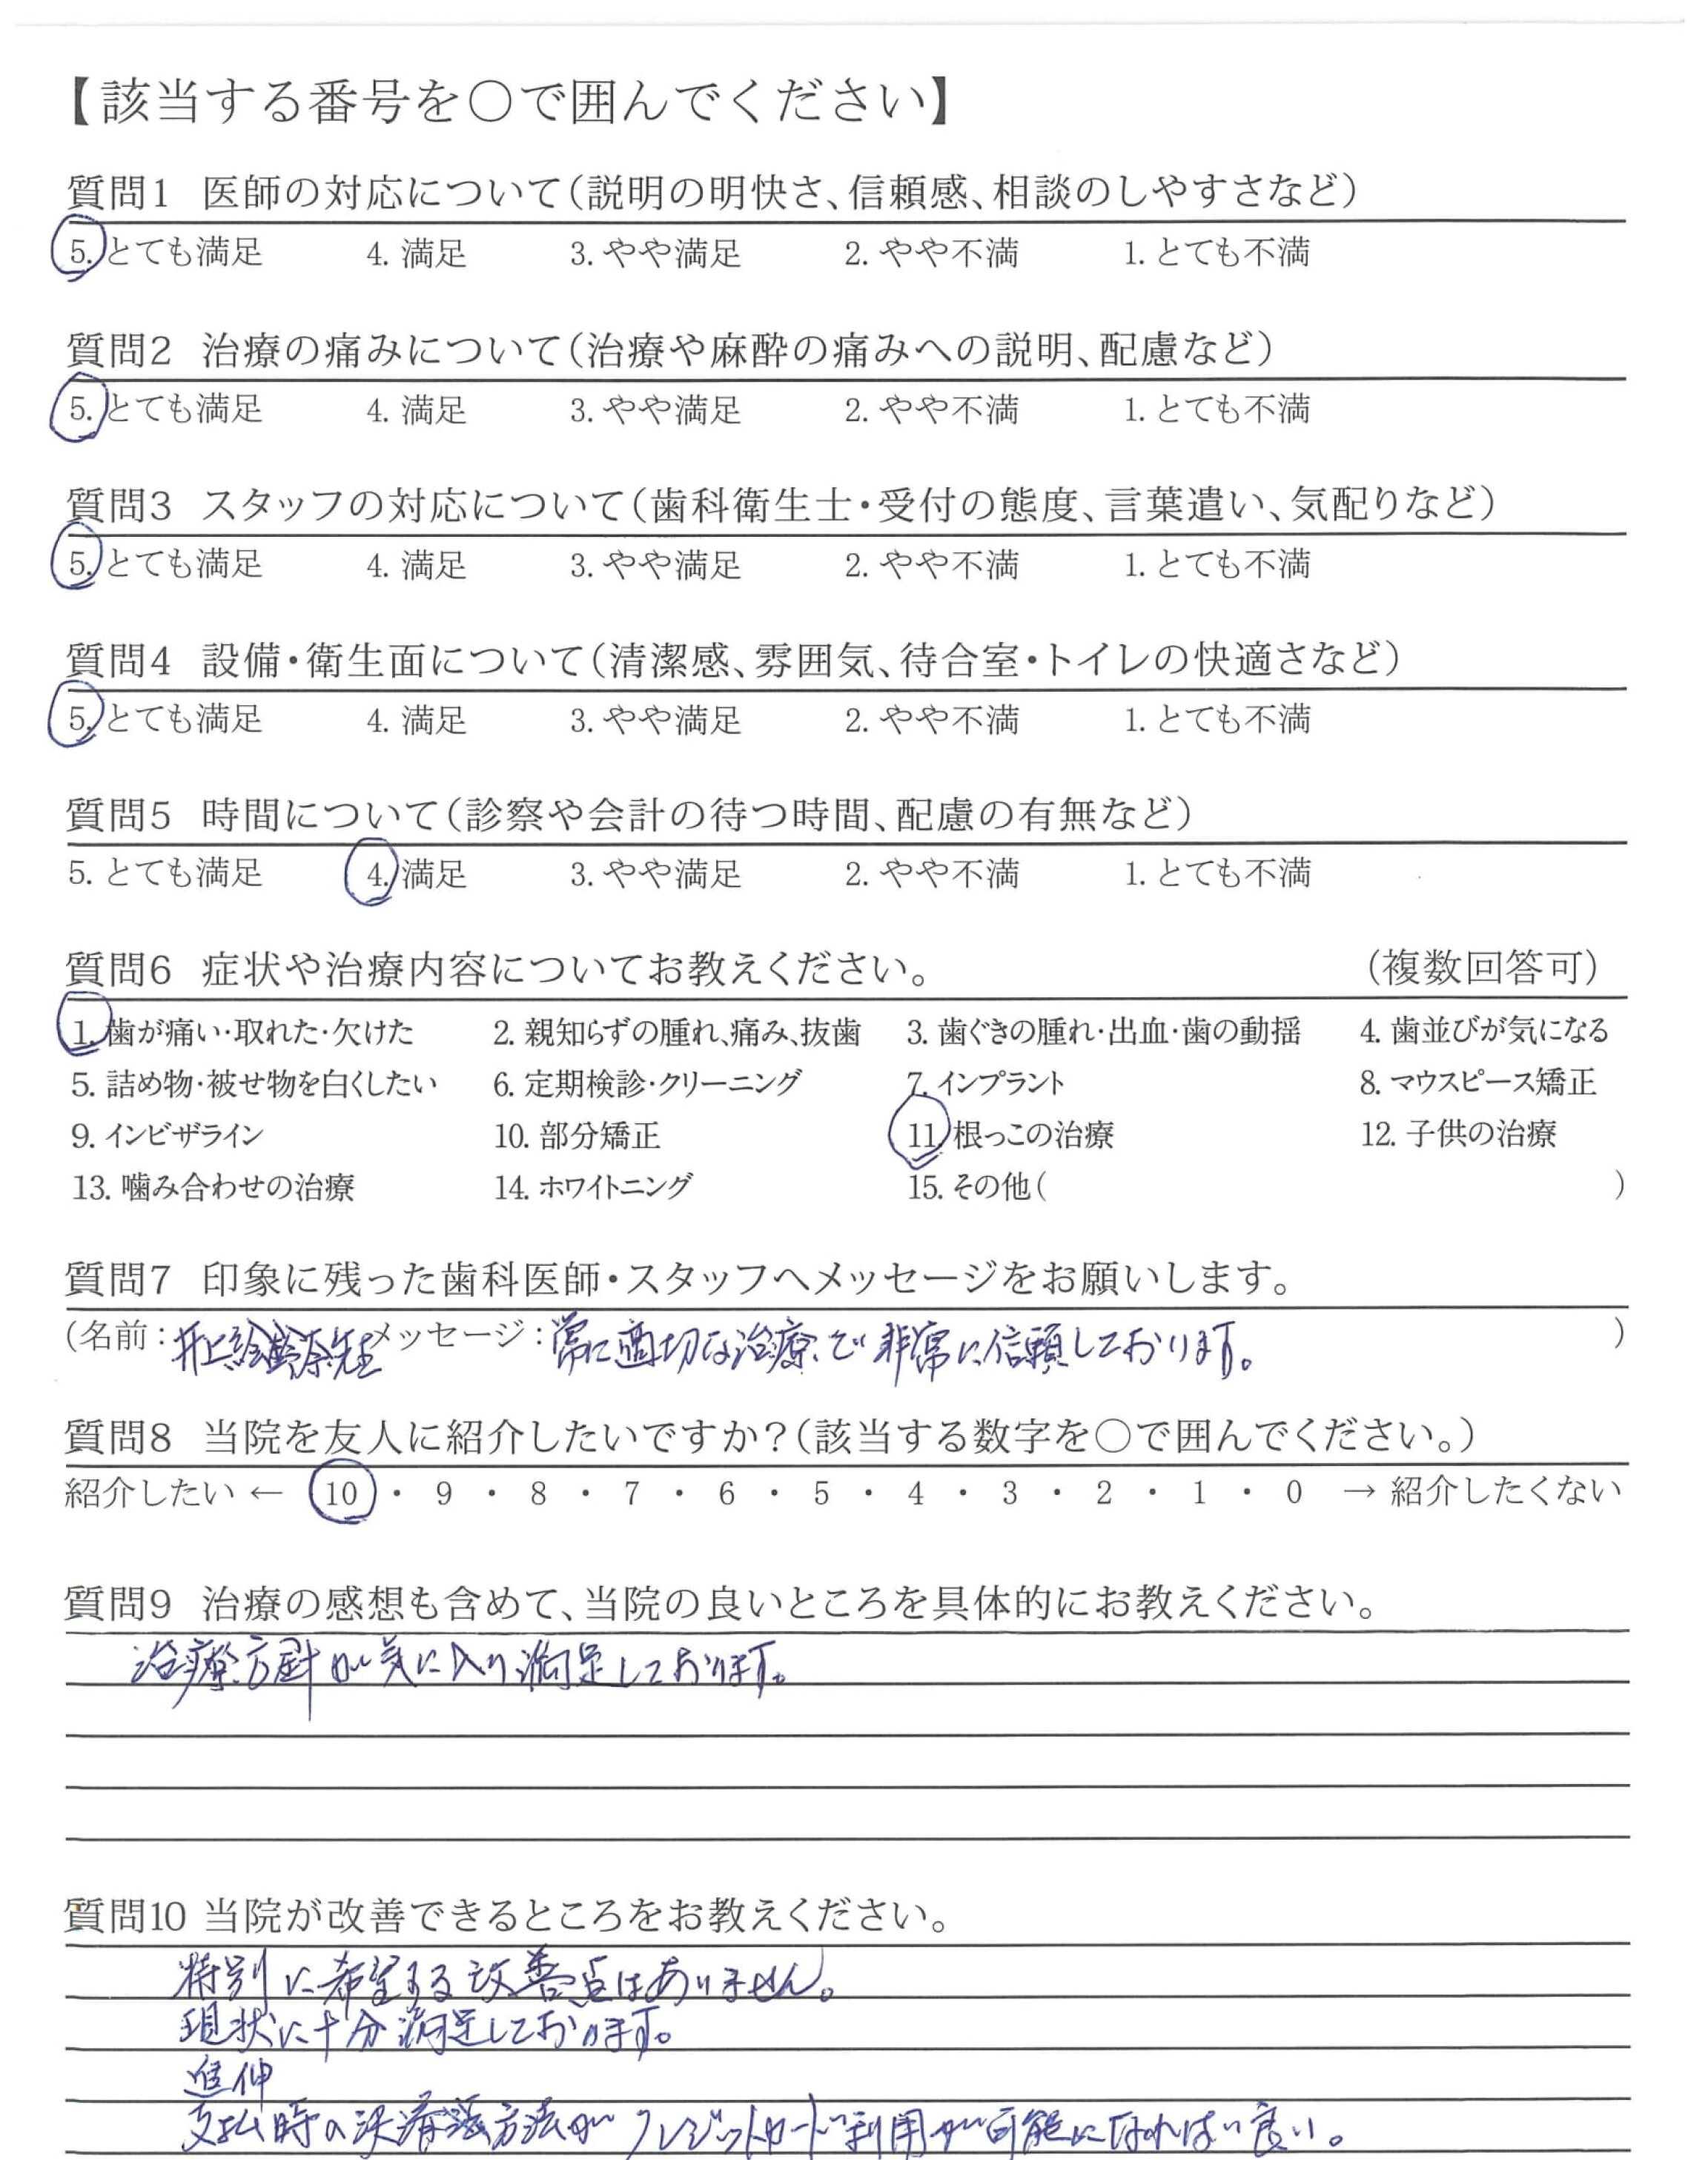 【該当する番号を〇で囲んでください】
質問1 医師の対応について(説明の明快さ、信頼感、相談のしやすさなど)
5. とても満足 4. 満足 3. やや満足 2. やや不満 1. とても不満
質問2 治療の痛みについて(治療や麻酔の痛みへの説明、配慮など)
5. とても満足 4. 満足 3. やや満足 2. やや不満 1. とても不満
質問3 スタッフの対応について(歯科衛生士・受付の態度、言葉遣い、気配りなど)
5. とても満足 4. 満足 3. やや満足 2. やや不満 1. とても不満
質問4 設備・衛生面について(清潔感、雰囲気、待合室・トイレの快適さなど)
5. とても満足 4. 満足 3. やや満足 2. やや不満 1. とても不満
質問5 時間について(診察や会計の待つ時間、配慮の有無など)
5. とても満足 4. 満足 3. やや満足 2. やや不満 1. とても不満
質問6 症状や治療内容についてお教えください。 (複数回答可)
1. 歯が痛い・取れた・欠けた 2. 親知らずの腫れ、痛み、抜歯 3. 歯ぐきの腫れ・出血・歯の動揺 4. 歯並びが気になる
5. 詰め物・被せ物を白くしたい 6. 定期検診・クリーニング 7. インプラント 8. マウスピース矯正
9. インビザライン 10. 部分矯正 11. 根っこの治療 12. 子供の治療
13. 噛み合わせの治療 14. ホワイトニング 15. その他( )
質問7 印象に残った歯科医師・スタッフへメッセージをお願いします。
(名前: 井上 先生 メッセージ: 常に適切な治療で非常に信頼しております。 )
質問8 当院を友人に紹介したいですか?(該当する数字を〇で囲んでください。)
紹介したい ← 10 ・ 9 ・ 8 ・ 7 ・ 6 ・ 5 ・ 4 ・ 3 ・ 2 ・ 1 ・ 0 → 紹介したくない
質問9 治療の感想も含めて、当院の良いところを具体的にお教えください。
治療方針が気に入り満足しております。
質問10 当院が改善できるところをお教えください。
特別に希望する改善点はありません。
現状に十分満足しております。
進伸
支払時の決済方法がクレジットカード利用が可能になればい良い。